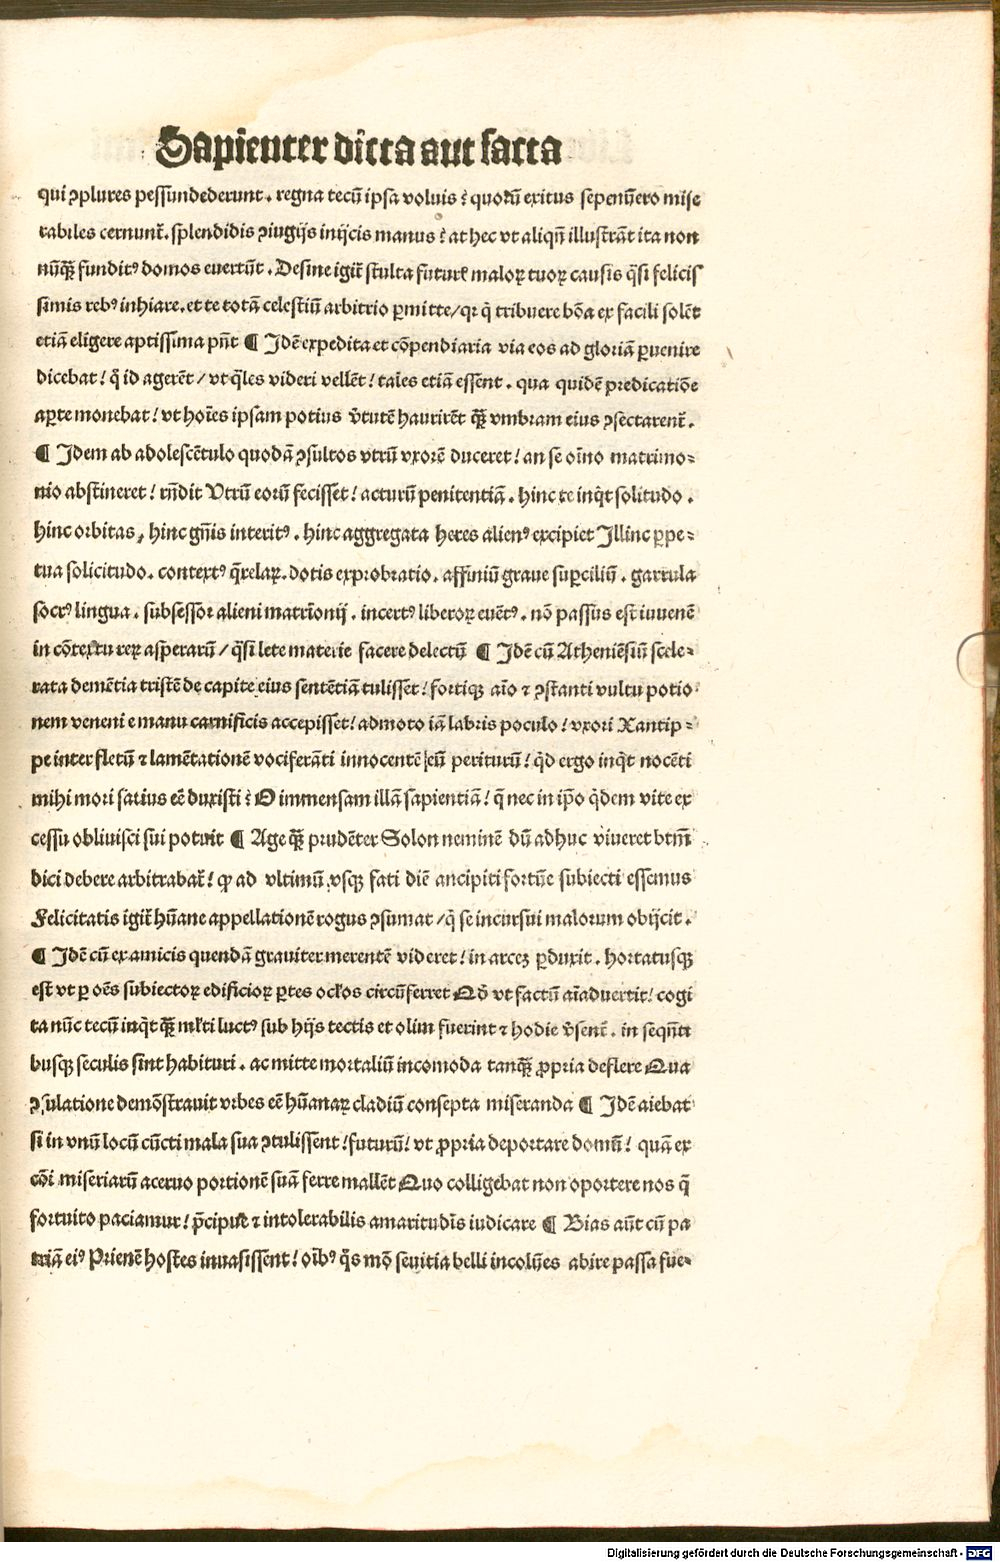 Sapienter dicta aut facta
qui ꝯplures pessundederunt. regna tecū ipsa voluis? quoꝝ exitus sepenūero mise
rabiles cernunt̃. splendidis ꝯiugijs inijcis manus? at hec vt aliqñ illustrāt ita non
nūqꝫ fundit⁹ domos euertūt. Desine igit̃ stulta future maloꝝ tuoꝝ causis q̄si felicis
simis reb⁹ inhiare. et te totā celestiū arbitrio ꝑmitte/qꝛ q̄ tribuere bōa ex facili solēt
etiā eligere aptissima pñt ¶ Idē expedita et cōpendiaria via eos ad gloriā ꝑuenire
dicebat! q̄ id agerēt/vt q̄les videri vellēt! tales etiā essent. qua quidē predicatiōe
aꝑte monebat! vt hoīes ipsam potius v̄tutē haurirēt qꝫ vmbram eius ꝯsectarent̃.
¶ Idem ab adolescētulo quodā ꝯsultus vtrū vxorē duceret! an se oīno matrimo⸗
nio abstineret! rñdit Vtrū eorū fecisset! acturū penitentiā. hinc te inq̄t solitudo.
hinc orbitas, hinc gñis interit⁹. hinc aggregata heres alien⁹ excipiet Illinc ꝑpe⸗
tua solicitudo. context⁹ q̄relaꝝ. dotis exprobratio. affiniū graue suꝑciliū. garrula
socr⁹ lingua. subsessor alieni matrīonij. incert⁹ liberoꝝ euēt⁹. nō passus est iuuenē
in cōtextu reꝝ asꝑarū/q̄si lete materie facere delectū ¶ Idē cū Atheniēsiū scele⸗
rata demētia tristē de capite eius sentētiā tulisset! fortiqꝫ aīo ⁊ ꝯstanti vultu potio
nem veneni e manu carnificis accepisset! admoto iā labris poculo! vxori Xantip⸗
pe inter fletū ⁊ lamētationē vociferāti innocentē eū periturū! q̄d ergo inq̄t nocēti
mihi mori satius eē duxisti? O immensam illā sapientiā! q̄ nec in ipō q̄dem vite ex
cessu obliuisci sui potuit ¶ Age qꝫ prudēter Solon neminē dū adhuc viueret btm̄
dici debere arbitrabat̃! ꝙ ad vltimū vsqꝫ fati diē ancipiti fortūe subiecti essemus
Felicitatis igit̃ hūane appellationē rogus ꝯsumat/q̄ se incursui malorum obijcit.
¶ Idē cū ex amicis quendā grauiter merentē videret! in arcez ꝑduxit. hortatusqꝫ
est vt ꝑ oēs subiectoꝝ edificioꝝ ꝑtes oclos circūferret Qd̄ vt factū aīaduertit! cogi
ta nūc tecū inq̄t qꝫ ml̄ti luct⁹ sub hijs tectis et olim fuerint ⁊ hodie v̄sent̃. in seqūti
busqꝫ seculis sint habituri. ac mitte mortaliū incomoda tanqꝫ ꝓpria deflere Qua
ꝯsulatione demōstrauit vrbes eē hūanaꝝ cladiū consepta miseranda ¶ Idē aiebat
si in vnū locū cūcti mala sua ꝯtulissent! futurū! vt ꝓpria deportare domū! quā ex
cōi miseriarū aceruo portionē suā ferre mallēt Quo colligebat non oportere nos q̄
fortuito paciamur! p̄cipue ⁊ intolerabilis amaritudīs iudicare ¶ Bias aūt cū pa
triā ei⁹ Prienē hostes inuasissent! oīb⁹ q̄s mō seuitia belli incolūes abire passa fue⸗
Digitalisierung gefördert durch die Deutsche Forschungsgemeinschaft - DFG